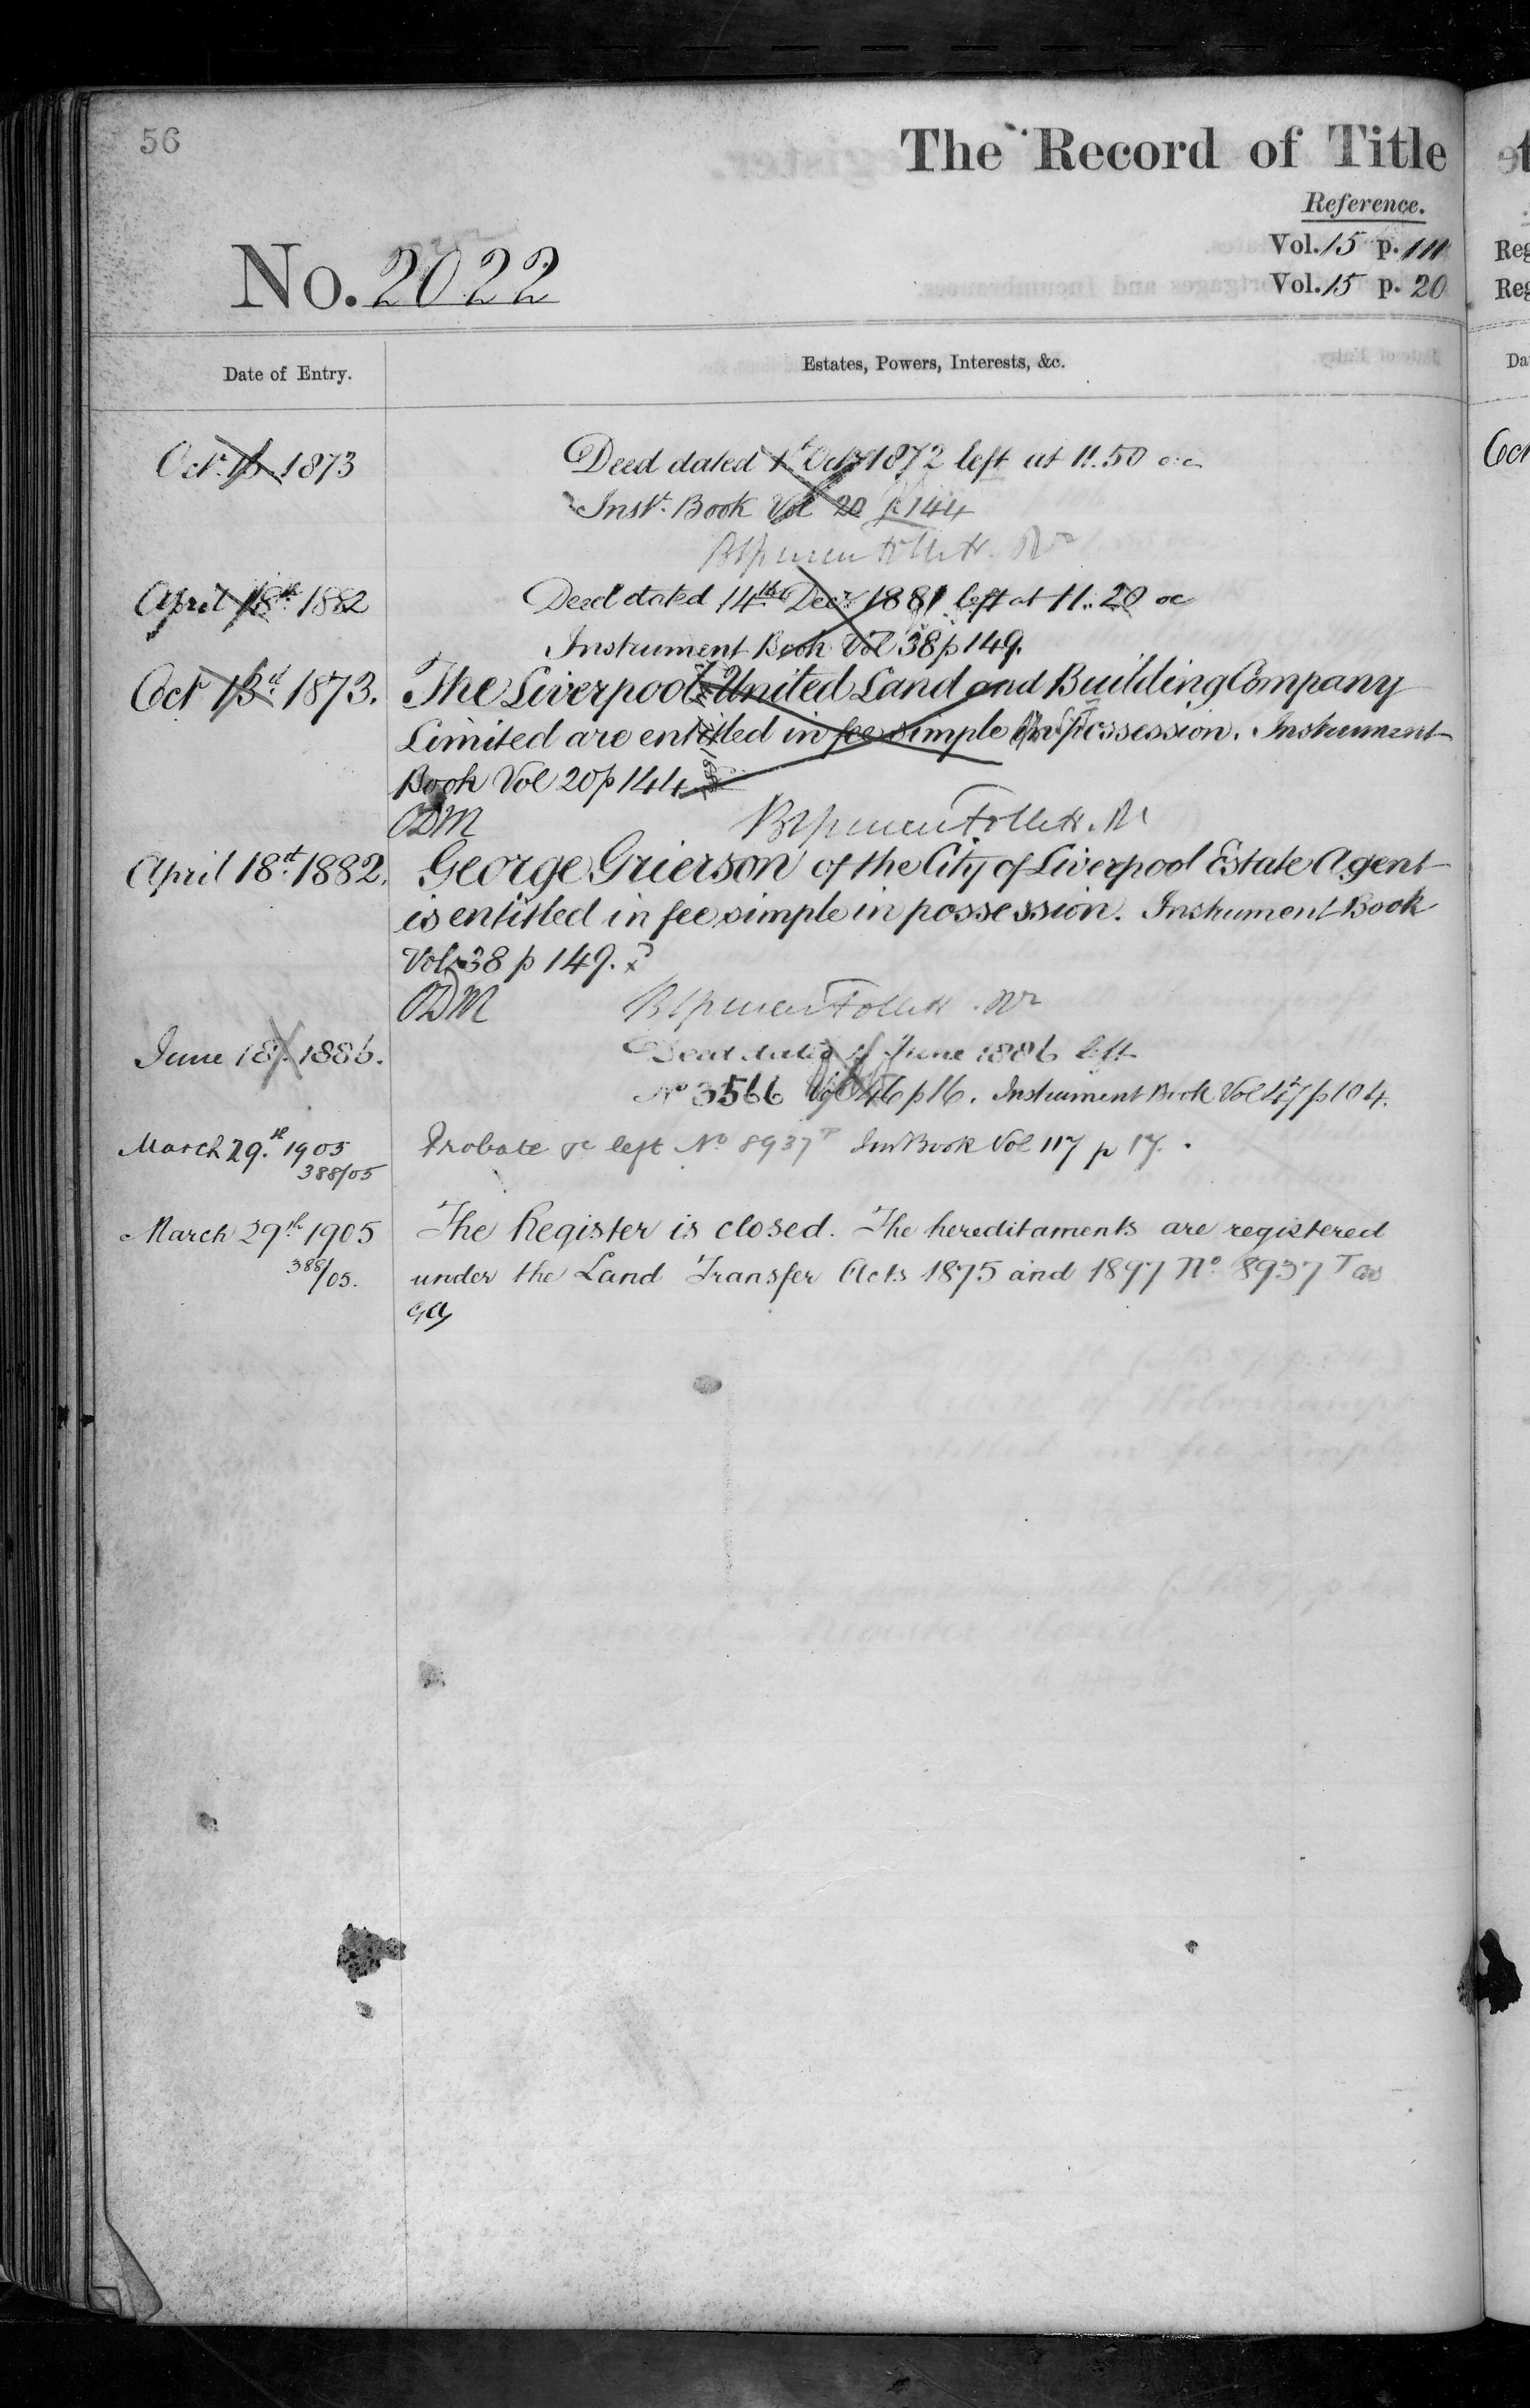 56
The Record of Title
Reference.
Vol. 15 p. 111
Vol. 15 p. 20
No. 2022
Date of Entry.
Estates, Powers, Interests, &c.
Octr. 13 1873
Deed dated 1st Octr 1872 left at 11.50 oc
Inst. Book Vol 20 p 144
April 18th 1882
Deed dated 14th Decr 1881 left at 11.20 oc
Instrument Book Vol 38 p 149.
Oct 13d 1873.
The Liverpool United Land and Building Company
Limited are entitled in fee simple in possession. Instrument
Book Vol 20 p 144
ODM
Follett
April 18th 1882.
George Grierson of the City of Liverpool Estate Agent
is entitled in fee simple in possession. Instrument Book
Vol 38 p 149.
ODM
Follett
June 18. 1886.
Deed dated June 1886 left
No 3566 Vol 46 p 16. Instrument Book Vol 47 p 104.
March 29th 1905
388/05
Probate &c left No 8937 T Ins Book Vol 117 p 17.
March 29th 1905
388/05.
The Register is closed. The hereditaments are registered
under the Land Transfer Acts 1875 and 1897 No. 8937 T
Reg
Reg
Da
Oct